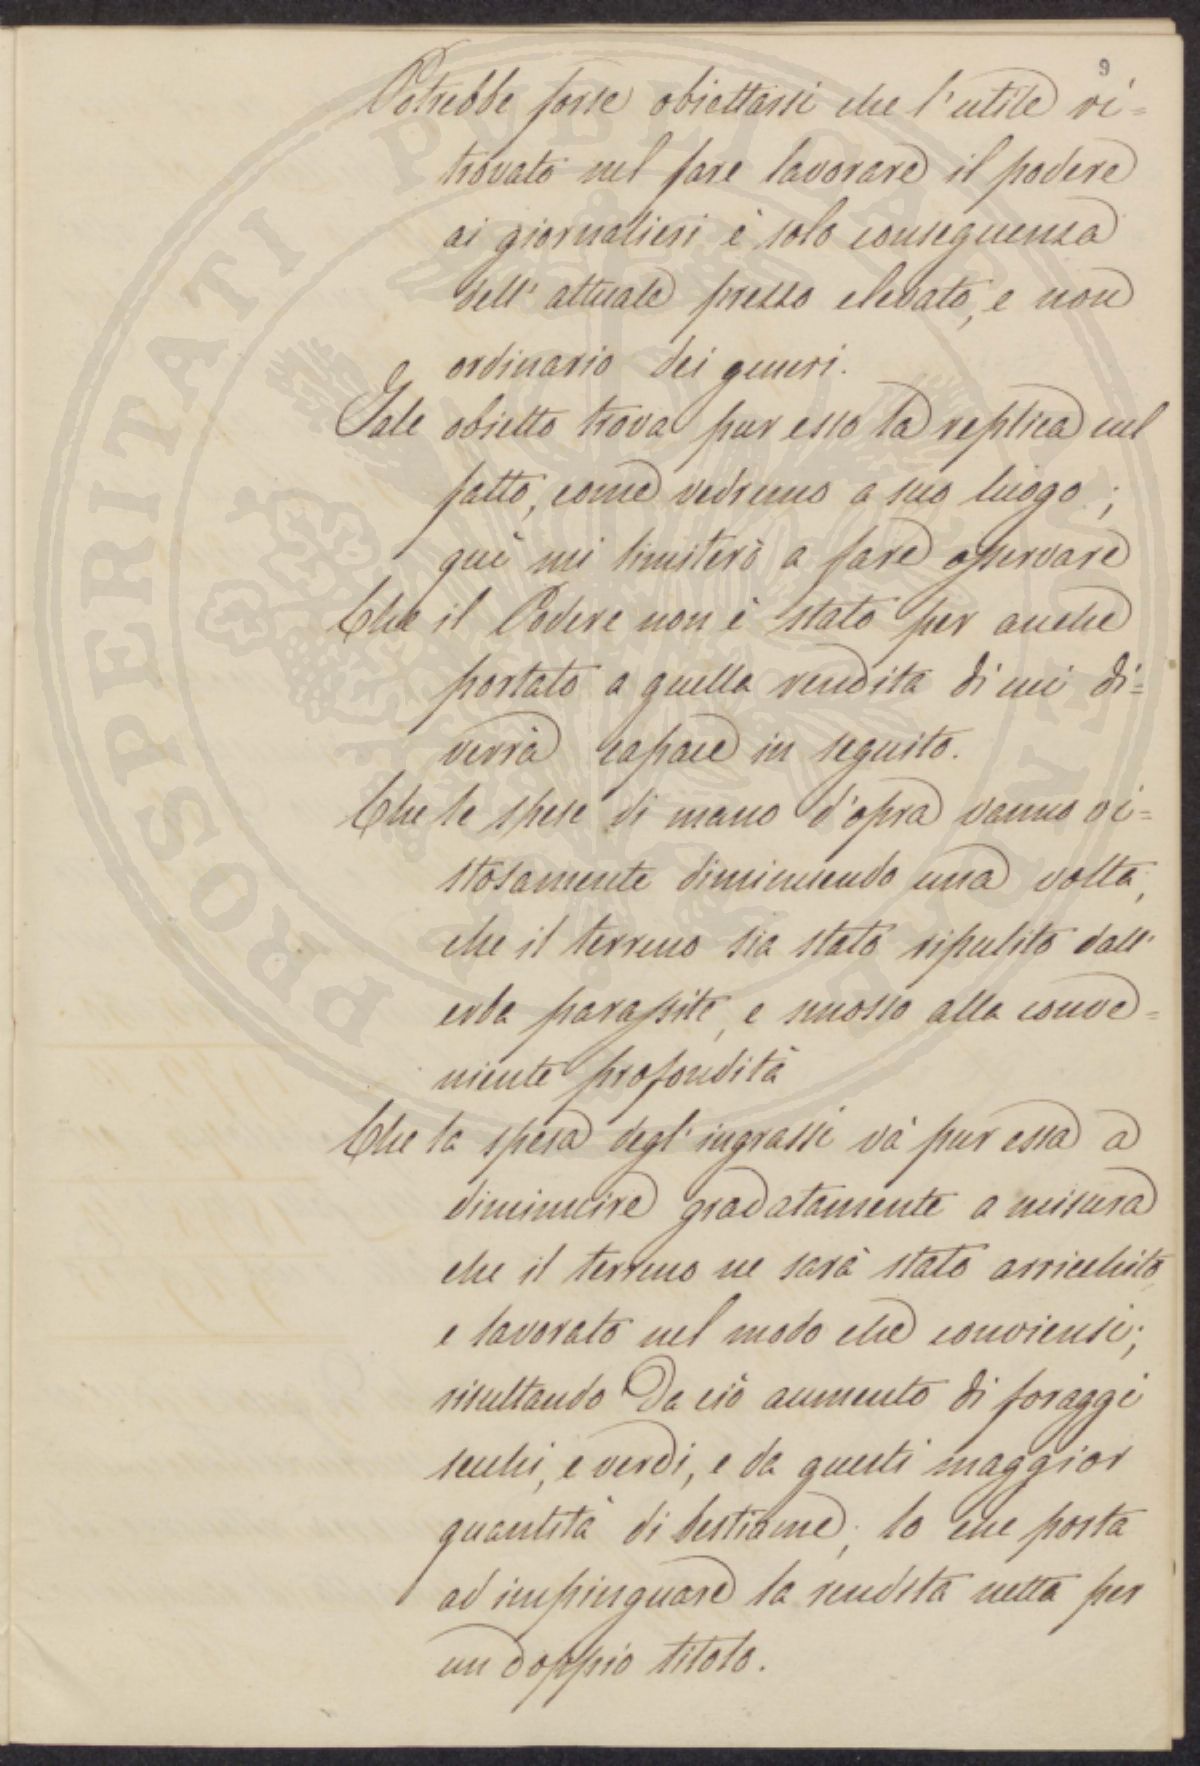 9
Potrebbe forse obiettarsi che l'utile ri=
trovato nel fare lavorare il podere
ai giornalieri è solo conseguenza
dell'attuale prezzo elevato, e non
ordinario dei generi.
Tale obietto trova pur esso la replica nel
fatto, come vedremo a suo luogo;
quì mi limiterò a fare osservare
Che il Podere non è stato per anche
portato a quella rendita di cui di=
verrà capace in seguito.
Che le spese di mano d'opra vanno vi=
stosamente diminuendo una volta,
che il terreno sia stato ripulito dall'
erbe parassite, e smosso alla conve=
niente profondità
Che la spesa degl'ingrassi và pur essa a
diminuire gradatamente a misura
che il terreno ne sarà stato arricchito
e lavorato nel modo che conviensi;
risultando da ciò aumento di foraggi
secchi, e verdi, e da questi maggior
quantità di bestiame; lo che porta
ad impinguare la rendita netta per
un doppio titolo.
PROSPERITATI PUBLICAE AUGENDAE